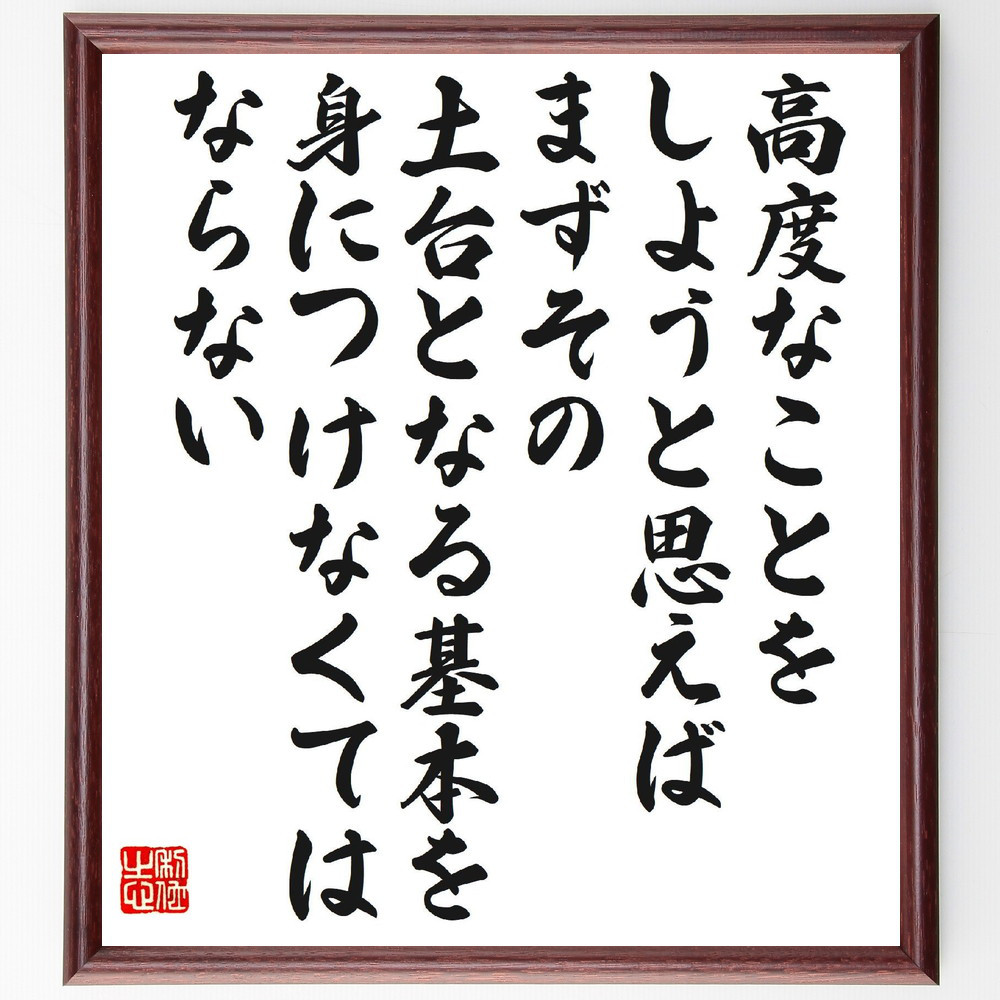 高度なことを
しようと思えば
まずその
土台となる基本を
身につけなくては
ならない